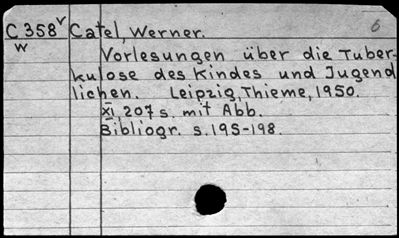 C 358 v Catel, Werner. 6
w
Vorlesungen über die Tuber-
kulose des Kindes und Jugend
lichen. Leipzig, Thieme, 1950.
XI, 207 s. mit Abb.
Bibliogr. s. 195-198.